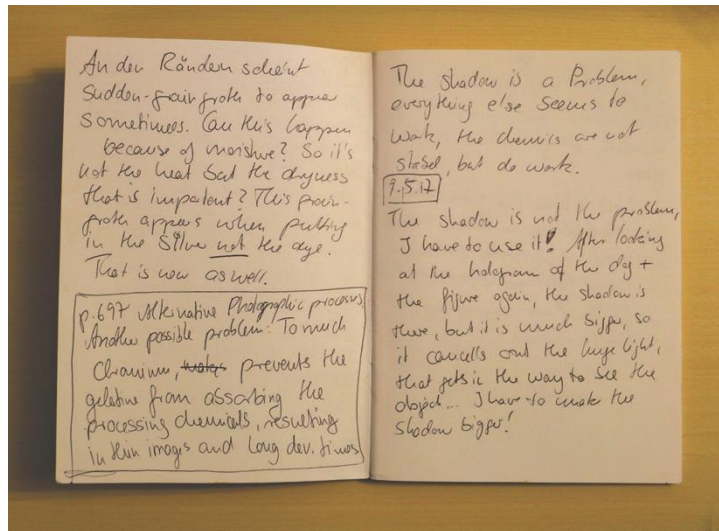 An den Rändern scheint
Sudden-grain groth to appear
sometimes. Can this happen
because of moisture? So it's
not the heat but the dryness
that is important? This grain-
groth appears when putting
in the Silver not the dye.
That is new aswell.
p. 697 Alternative Photographic processes
Another possible problem: To much
Chromium, prevents the
gelatine from absorbing the
processing chemicals, resulting
in thin images and long dev. times
The shadow is a Problem,
everything else seems to
work, the chemics are not
stabel, but do work.
9.5.17
The shadow is not the problem,
I have to use it! After looking
at the hologram of the dog +
the figure again, the shadow is
there, but it is much bigger, so
it cancells out the huge light,
that gets in the way to see the
object... I have to make the
shadow bigger!